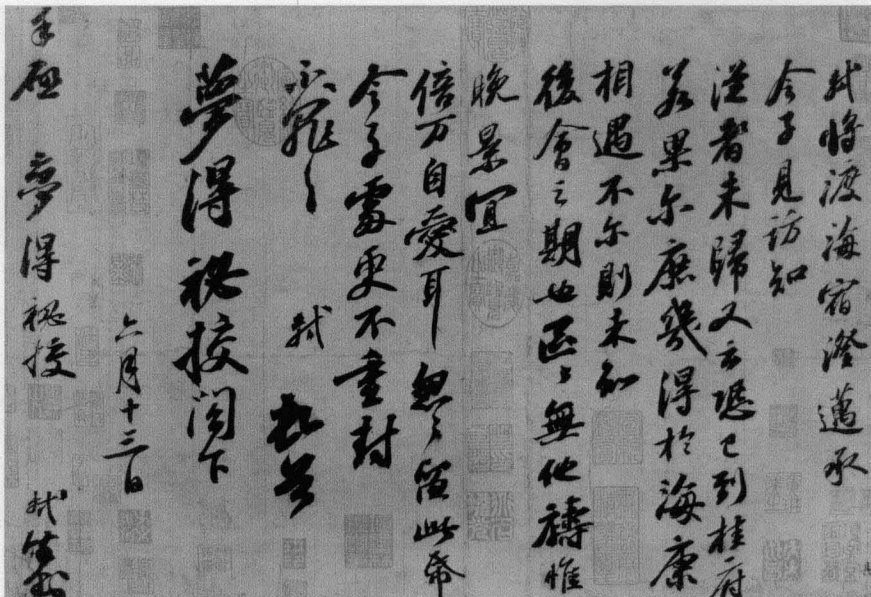 軾將渡海宿澄邁承
令子見訪知
從者未歸又云恐已到桂府
若果尔庶幾得於海康
相遇不尔則未知
後會之期也區區無他禱惟
晚景宜
倍万自愛耳忽忽留此帋
令子處更不重封
不罪不罪 軾 頓首
夢得秘校閣下
六月十三日
手啟 夢得秘校 軾 封